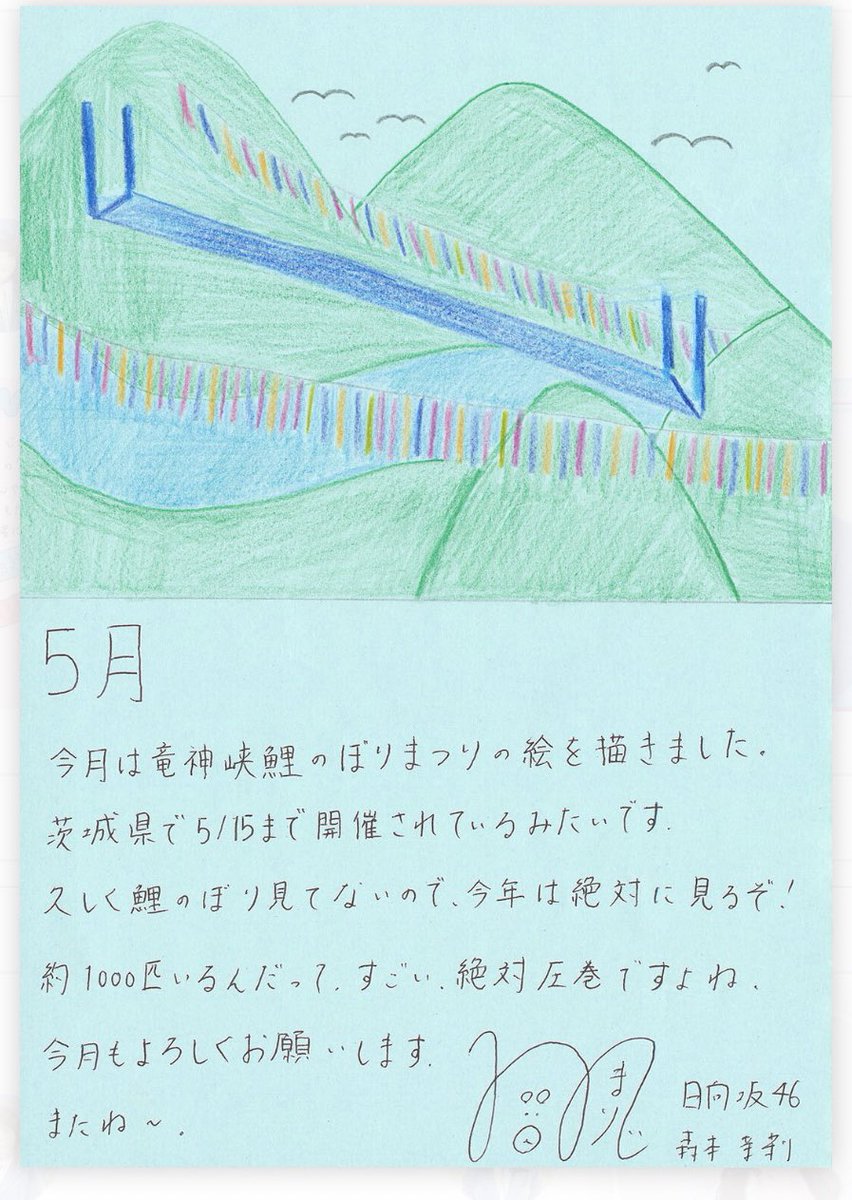 5月
今月は竜神峡鯉のぼりまつりの絵を描きました。
茨城県で5/15まで開催されているみたいです.
久しく鯉のぼり見てないので、今年は絶対に見るぞ!
約1000匹いるんだって、すごい、絶対圧巻ですよね、
今月もよろしくお願いします.
またね〜.
まりぃ
日向坂46
森本茉莉